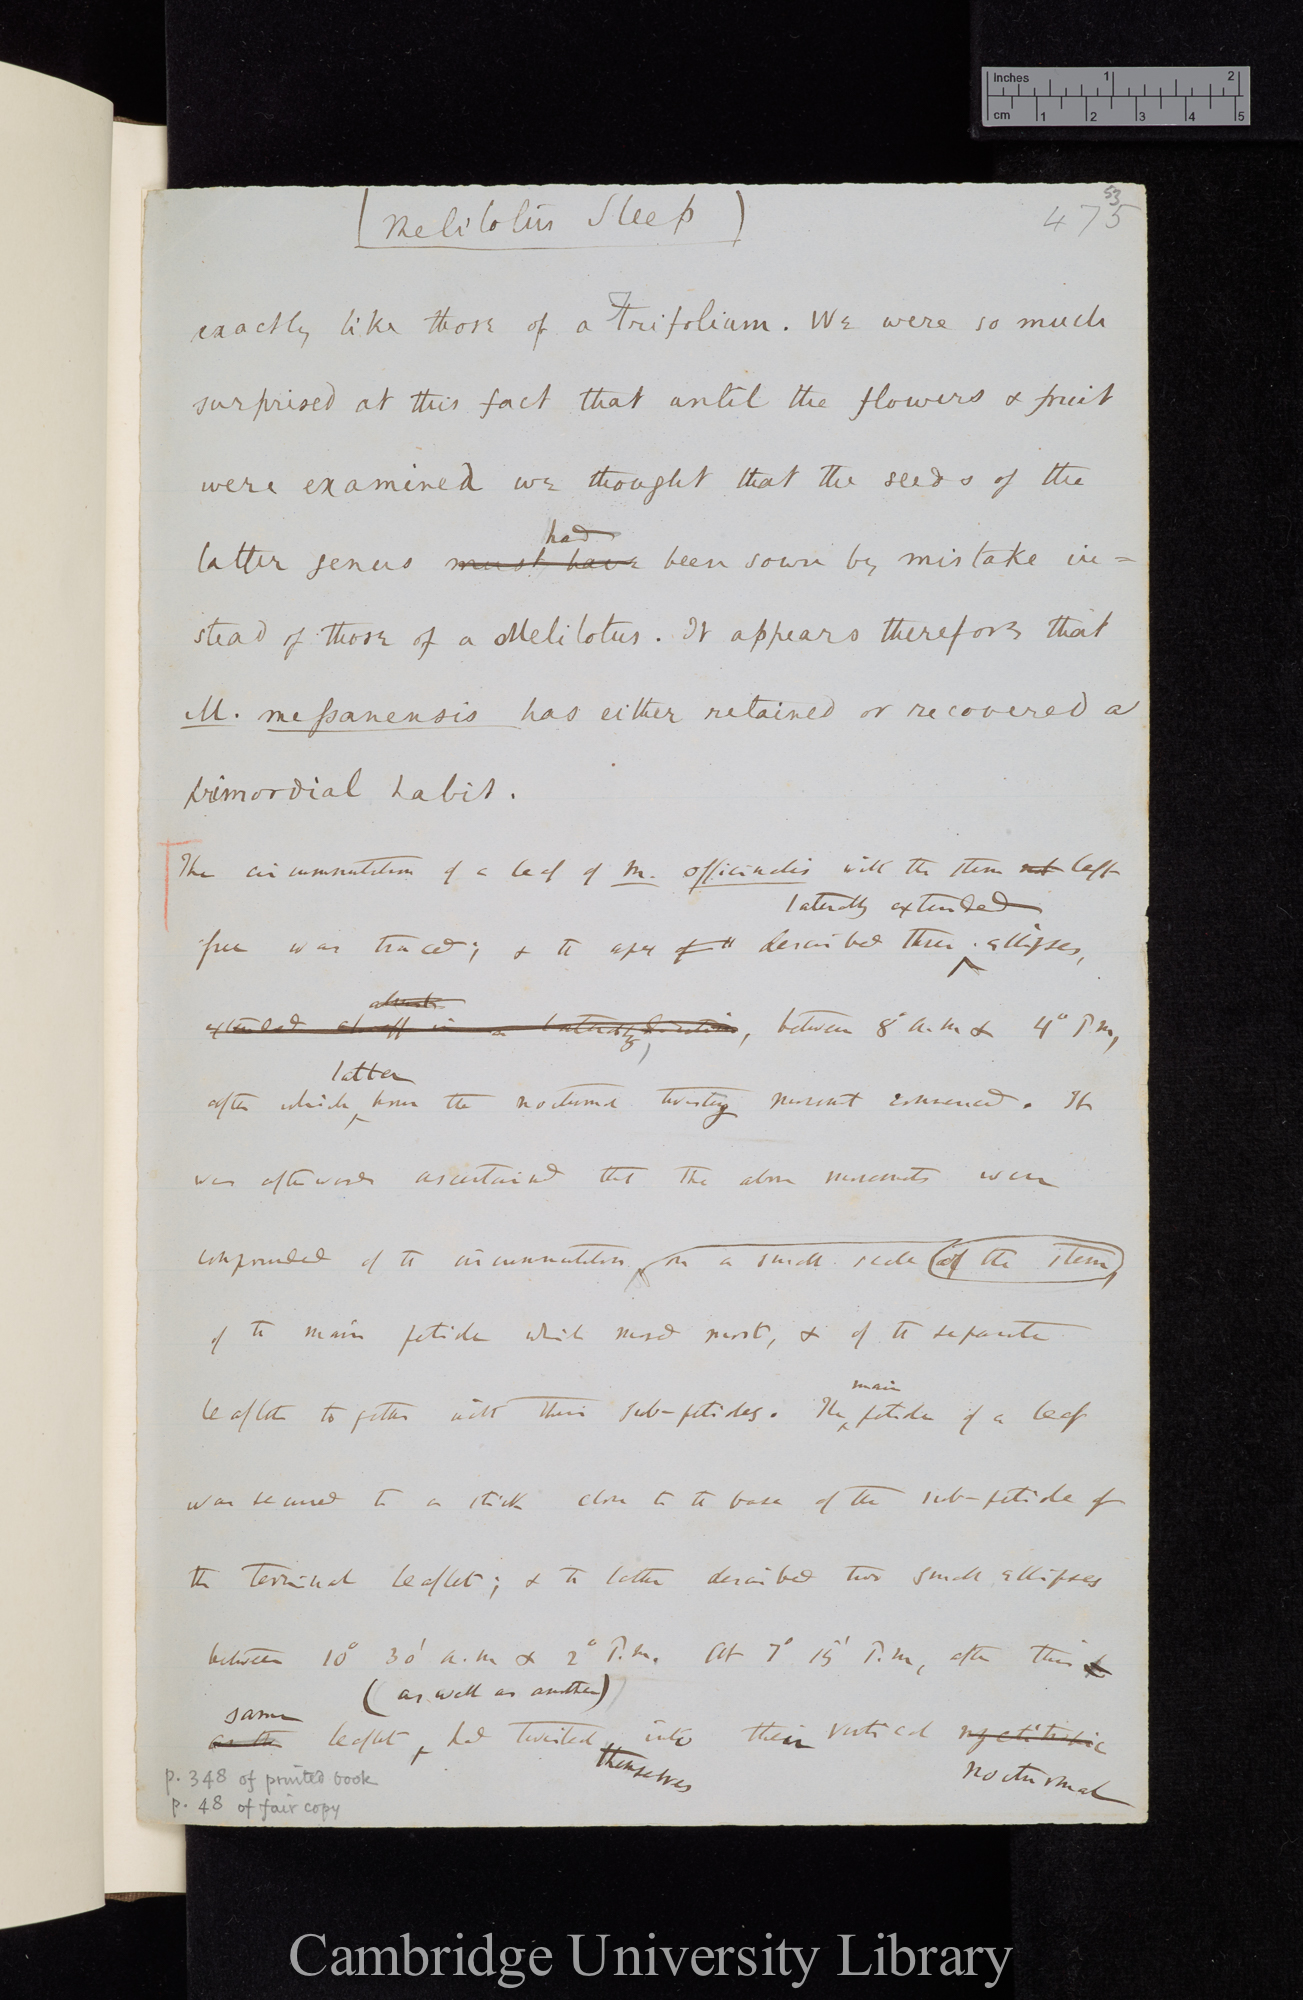 Inches 1 2
cm 1 2 3 4 5
53
(Melilotus Sleep) 475
exactly like those of a Trifolium. We were so much
surprised at this fact that until the flowers & fruit
were examined we thought that the seeds of the
had
latter genus must have been sown by mistake in=
stead of those of a Melilotus. It appears therefore that
M. messanensis has either retained or recovered a
primordial habit.
The circumnutation of a leaf of M. officinalis with the stem not left
laterally extended
free was traced; & the apex of it described three ellipses,
extended in a lateral direction, between 8° a.m & 4° P.m,
latter
after which hour the nocturnal twisting movement commenced. It
was afterwards ascertained that the above movements were
compounded of the circumnutation, on a small scale of the stem,
of the main petiole which moved most, & of the separate
main
leaflets together with their sub-petioles. The petiole of a leaf
was secured to a stick close to the base of the sub-petiole of
the terminal leaflet; & the latter described two small ellipses
between 10° 30' a.m & 2° P.m. At 7° 15' P.m, after this
(as well as another)
same
as the leaflet, had twisted into their vertical nyctitropic
themselves nocturnal
p. 348 of printed book
p. 48 of fair copy
Cambridge University Library